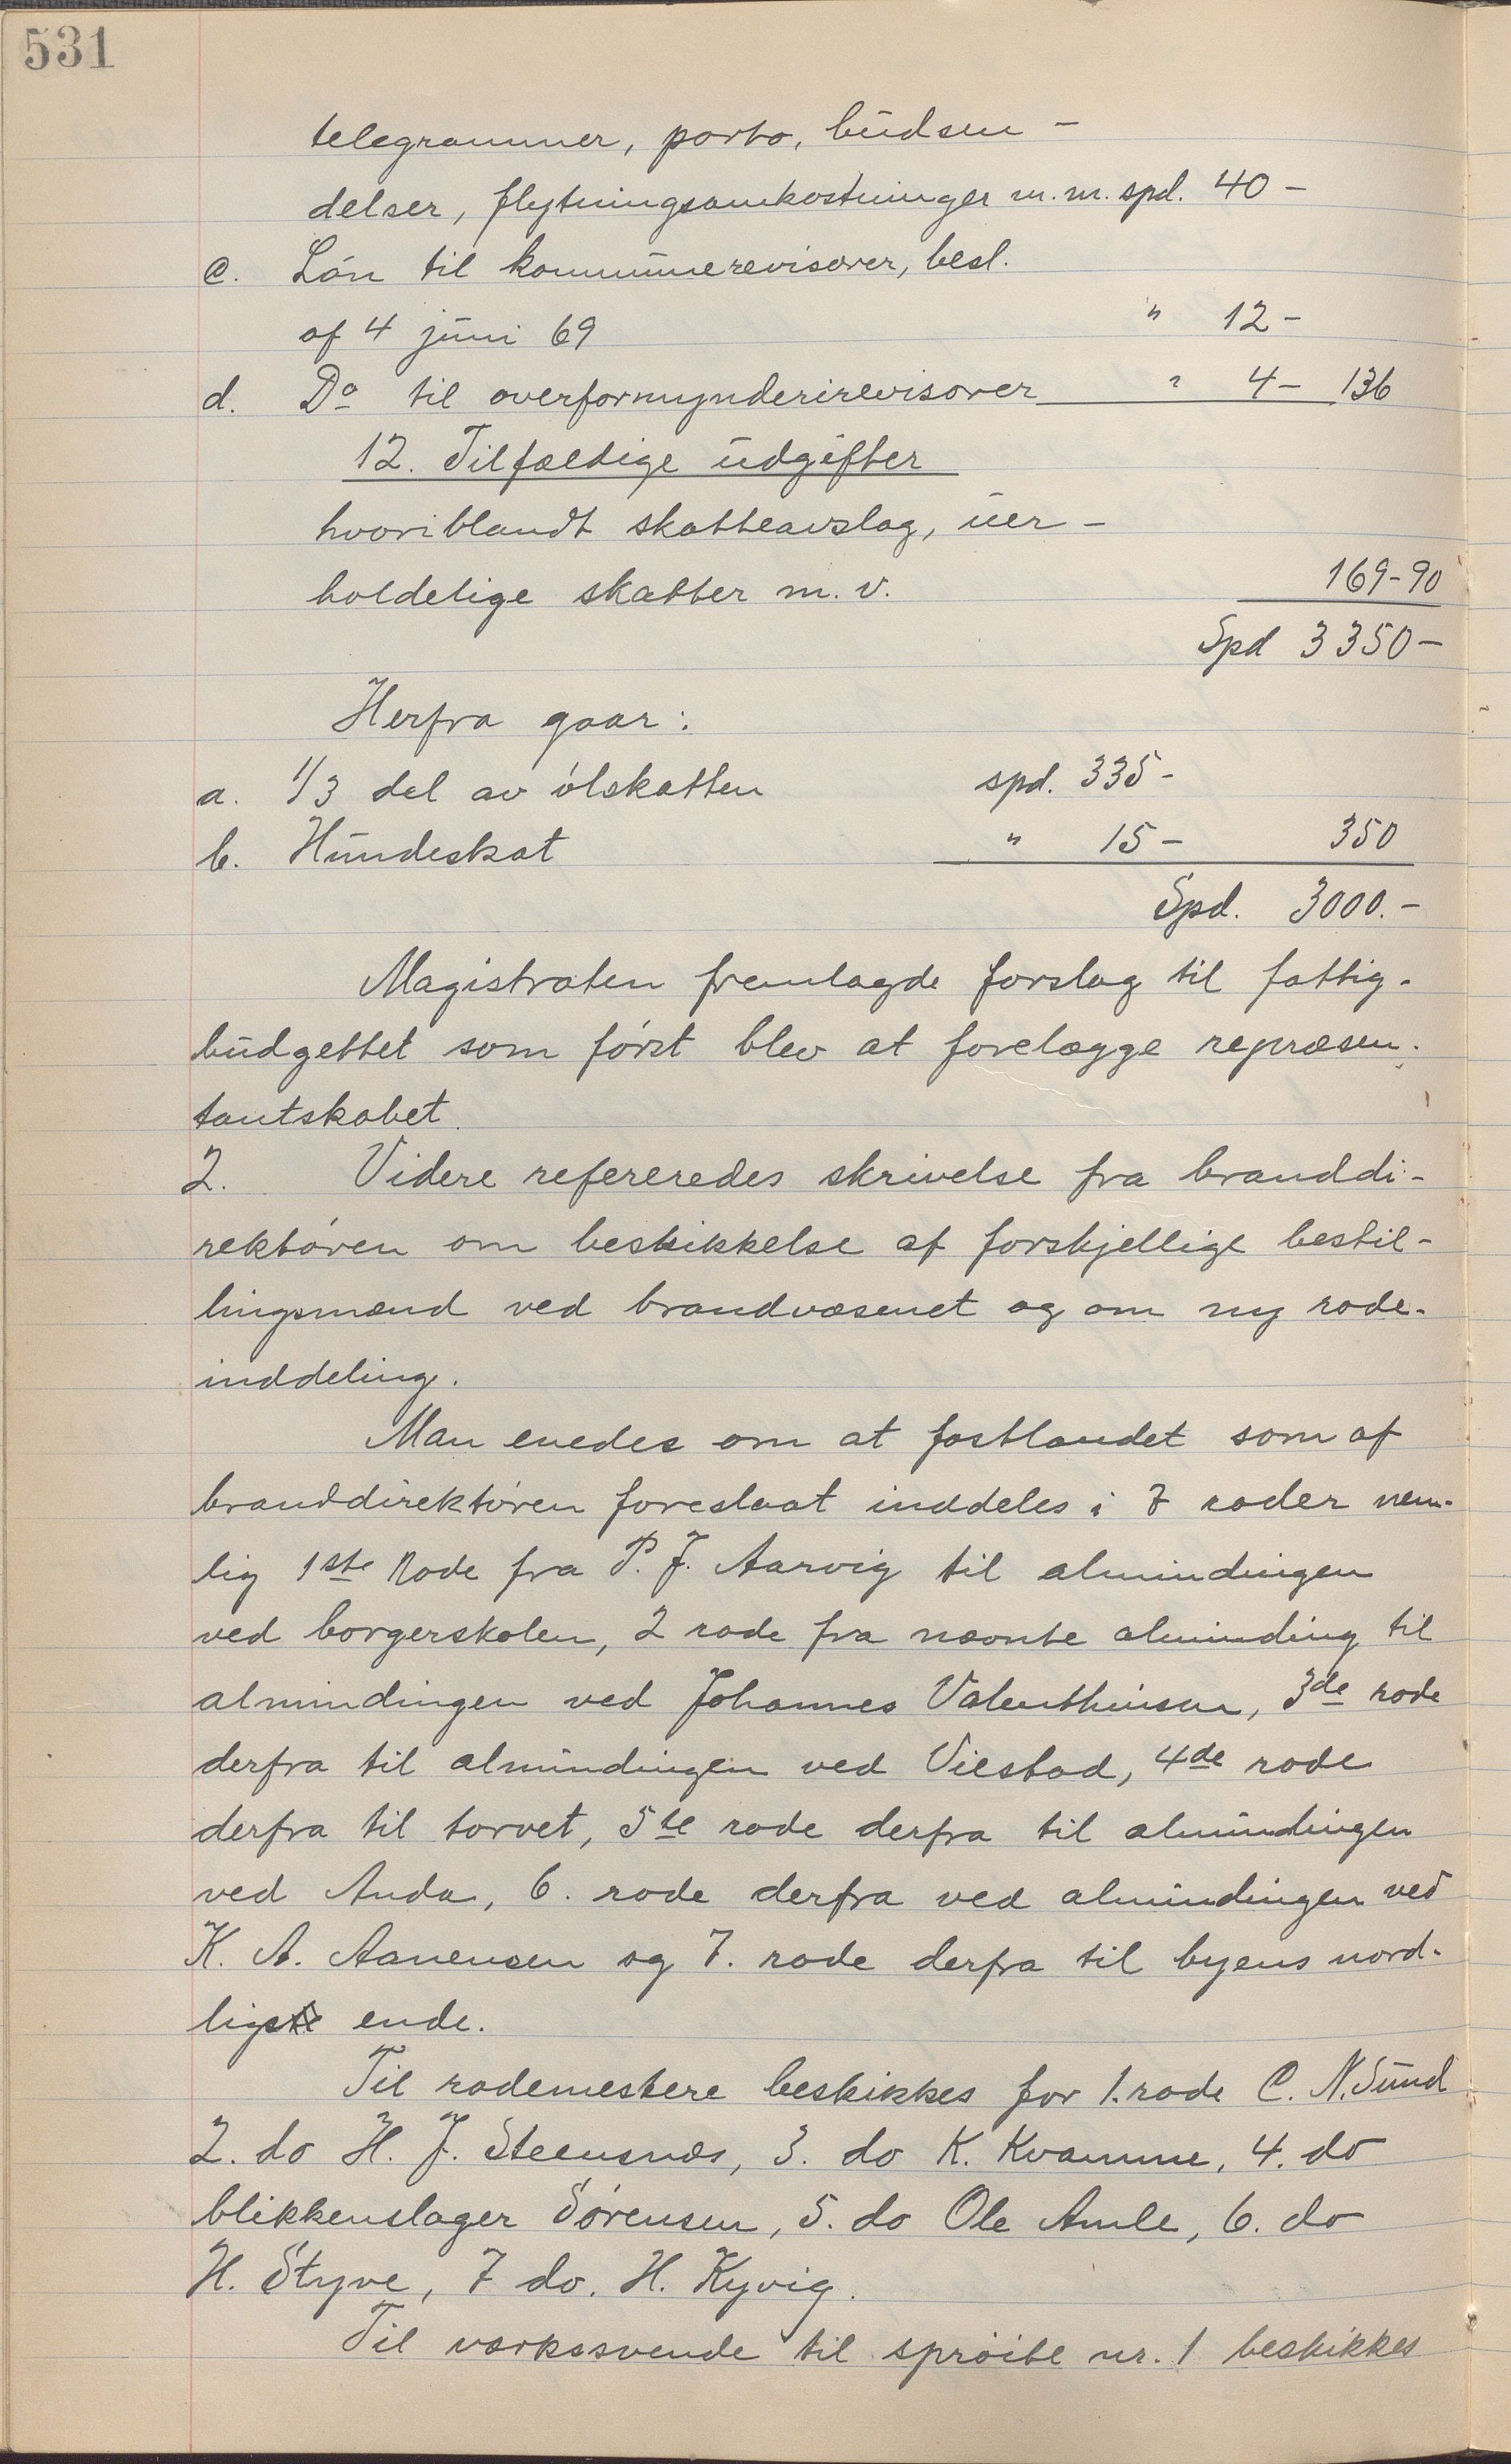 531
telegrammer, porto, budsen-
delser, flytningsomkostninger m.m. spd. 40 -
c. Lön til kommunerevisorer, besl.
af 4 juni 69 " 12 -
d. Do til overformynderirevisorer " 4 - 136
12. Tilfældige udgifter
hvoriblandt skatteavslag, uer-
holdelige skatter m. v. 169-90
Spd 3350 -
Herfra gaar:
a. 1/3 del av ölskatten spd. 335 -
b. Hundeskat " 15 - 350
Spd. 3000. -
Magistraten fremlagde forslag til fattig-
budgettet som först blev at forelægge repræsen-
tantskabet.
2. Videre refereredes skrivelse fra branddi-
rektören om beskikkelse af forskjellige bestil-
lingsmænd ved brandvæsenet og om ny rode-
inddeling.
Man enedes om at fastlandet som af
branddirektören foreslaat inddeles i 7 roder nem-
lig 1ste Rode fra P. J. Aarvig til almindingen
ved borgerskolen, 2 rode fra nævnte alminding til
almindingen ved Johannes Valenthinsen, 3de rode
derfra til almindingen ved Viestad, 4de rode
derfra til torvet, 5te rode derfra til almindingen
ved Anda, 6. rode derfra ved almindingen ved
K. A. Aanensen og 7. rode derfra til byens nord-
ligste ende.
Til rodemestere beskikkes for 1. rode C. N. Sund
2. do H. J. Steensnæs, 3. do K. Kvamme, 4. do
blikkenslager Sörensen, 5. do Ole Amle, 6. do
H. Styve, 7 do. H. Kyvig.
Til værkssvende til spröite nr. 1 beskikkes